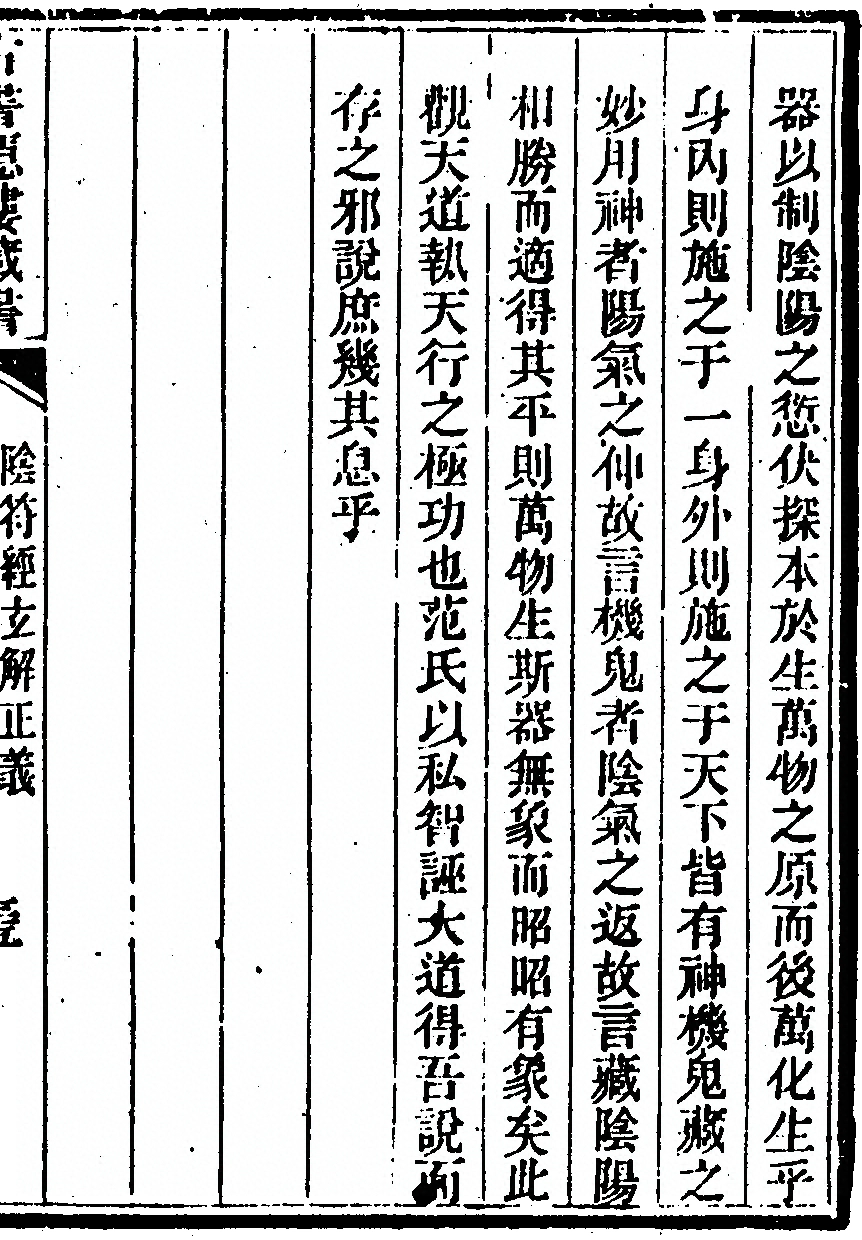 器以制陰陽之愆伏探本於生萬物之原而後萬化生乎
身內則施之于一身外則施之于天下皆有神機鬼藏之
妙用神者陽氣之伸故言機鬼者陰氣之返故言藏陰陽
相勝而適得其平則萬物生斯器無象而昭昭有象矣此
觀天道執天行之極功也范氏以私智誣大道得吾說而
存之邪說庶幾其息乎
陰符經玄解正義